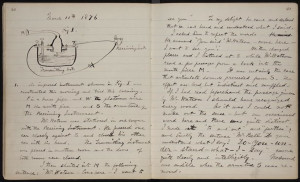 March 10th 1876
see you". To my delight he came and declared
that he had heard and understood what I said.
I asked him to repeat the words.
He answered "You said 'Mr Watson — come here —
I want to see you'." We then changed
places and I listened at S while Mr Watson
read a few passages from a book into the
mouth piece M. It was certainly the case
that articulate sounds proceeded from S. The
effect was loud but indistinct and muffled.
If I had read beforehand the passage given
by Mr Watson I should have recognized
every word. As it was I could not
make out the sense — but an occasional
word here and there was quite distinct.
I made out "to" and "out" and "further";
and finally the sentence "Mr Bell do you
understand what I say? Do — you — un —
der — stand — what — I — say" came
quite clearly and intelligibly. No sound
was audible when the armature S was re-
moved.
1. The improved instrument shown in Fig. 1 was
constructed this morning and tried this evening.
P is a brass pipe and W the platinum wire
M the mouth piece and S the armature of
the Receiving Instrument.
Mr Watson was stationed in one room
with the Receiving Instrument. He pressed one
ear closely against S and closed his other
ear with his hand. The Transmitting Instrument
was placed in another room and the doors of
both rooms were closed.
I then shouted into M the following
sentence: "Mr Watson — Come here — I want to